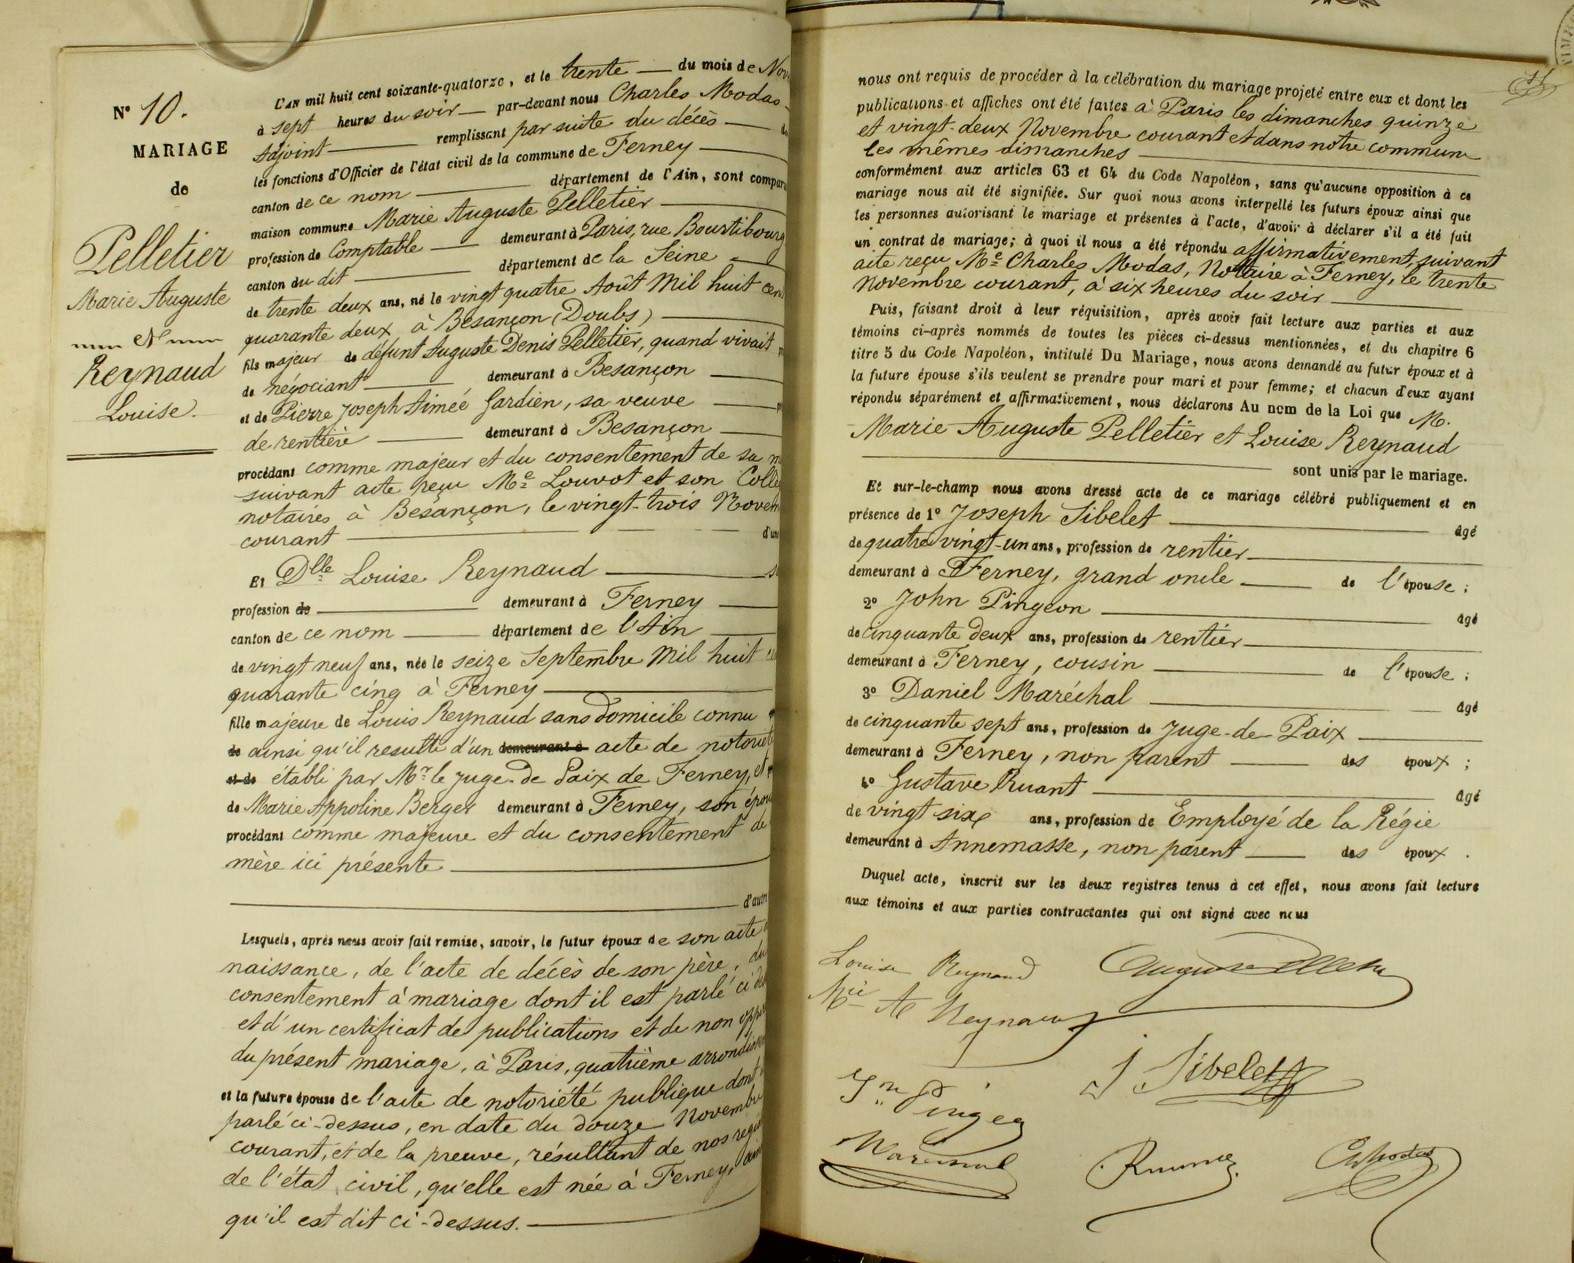 N° 10.
MARIAGE
de
Pelletier
Marie Auguste
et
Reynaud
Louise.
L'AN mil huit cent soixante-quatorze, et le trente du mois de Nov
à sept heures du soir par-devant nous Charles Modas
Adjoint remplissant par suite du décès
les fonctions d'Officier de l'état civil de la commune de Ferney
canton de ce nom département de l'Ain, sont compar
maison commune Marie Auguste Pelletier
profession de Comptable demeurant à Paris, rue Bourtibourg
canton du dit département de la Seine
de trente deux ans, né le vingt quatre Août Mil huit cent
quarante deux, à Besançon (Doubs)
fils majeur de défunt Auguste Denis Pelletier, quand vivait
de négociant demeurant à Besançon
et de Pierre Joseph Aimée Gardien, sa veuve
de rentière demeurant à Besançon
procédant comme majeur et du consentement de sa m
suivant acte reçu Me Louvot et son Collè
notaires à Besançon, le vingt-trois Novem
courant d'une
Et Dlle Louise Reynaud s
profession de demeurant à Ferney
canton de ce nom département de l'Ain
de vingt neuf ans, née le seize Septembre Mil huit
quarante cinq à Ferney
fille majeure de Louis Reynaud sans domicile connu
de ainsi qu'il resulte d'un demeurant à acte de notoriét
et de établi par Mr le Juge de Paix de Ferney, et
de Marie Appoline Berger demeurant à Ferney, son épou
procédant comme majeure et du consentement de
mère ici présente
d'autre
Lesquels, après nous avoir fait remise, savoir, le futur époux de son acte
naissance, de l'acte de décès de son père, du
consentement à mariage dont il est parlé ci de
et d'un certificat de publications et de non oppo
du présent mariage, à Paris, quatrième arrondissem
et la future épouse de l'acte de notoriété publique dont
parlé ci-dessus, en date du douze Novembre
courant, et de la preuve, résultant de nos regi
de l'état civil, qu'elle est née à Ferney, ain
qu'il est dit ci-dessus.
nous ont requis de procéder à la célébration du mariage projeté entre eux et dont les
publications et affiches ont été faites à Paris les dimanches quinze
et vingt-deux Novembre courant et dans notre commune
les mêmes dimanches
conformément aux articles 63 et 64 du Code Napoléon, sans qu'aucune opposition à ce
mariage nous ait été signifiée. Sur quoi nous avons interpellé les futurs époux ainsi que
les personnes autorisant le mariage et présentes à l'acte, d'avoir à déclarer s'il a été fait
un contrat de mariage; à quoi il nous a été répondu affirmativement, suivant
acte reçu Me Charles Modas, Notaire à Ferney, le trente
Novembre courant, à six heures du soir
Puis, faisant droit à leur réquisition, après avoir fait lecture aux parties et aux
témoins ci-après nommés de toutes les pièces ci-dessus mentionnées, et du chapitre 6
titre 5 du Code Napoléon, intitulé Du Mariage, nous avons demandé au futur époux et à
la future épouse s'ils veulent se prendre pour mari et pour femme; et chacun d'eux ayant
répondu séparément et affirmativement, nous déclarons Au nom de la Loi que M.
Marie Auguste Pelletier et Louise Reynaud
sont unis par le mariage.
Et sur-le-champ nous avons dressé acte de ce mariage célébré publiquement et en
présence de 1° Joseph Sibelet âgé
de quatre vingt-un ans, profession de rentier
demeurant à Ferney, grand oncle de l'épouse;
2° John Pingeon âgé
de cinquante deux ans, profession de rentier
demeurant à Ferney, cousin de l'épouse;
3° Daniel Maréchal âgé
de cinquante sept ans, profession de Juge-de-Paix
demeurant à Ferney, non parent des époux;
4° Gustave Ruant âgé
de vingt six ans, profession de Employé de la Régie
demeurant à Annemasse, non parent des époux.
Duquel acte, inscrit sur les deux registres tenus à cet effet, nous avons fait lecture
aux témoins et aux parties contractantes qui ont signé avec nous
Louise Reynaud
Auguste Pelletier
Mie A Reynaud
J Sibelet
Jn Pingeon
Marechal